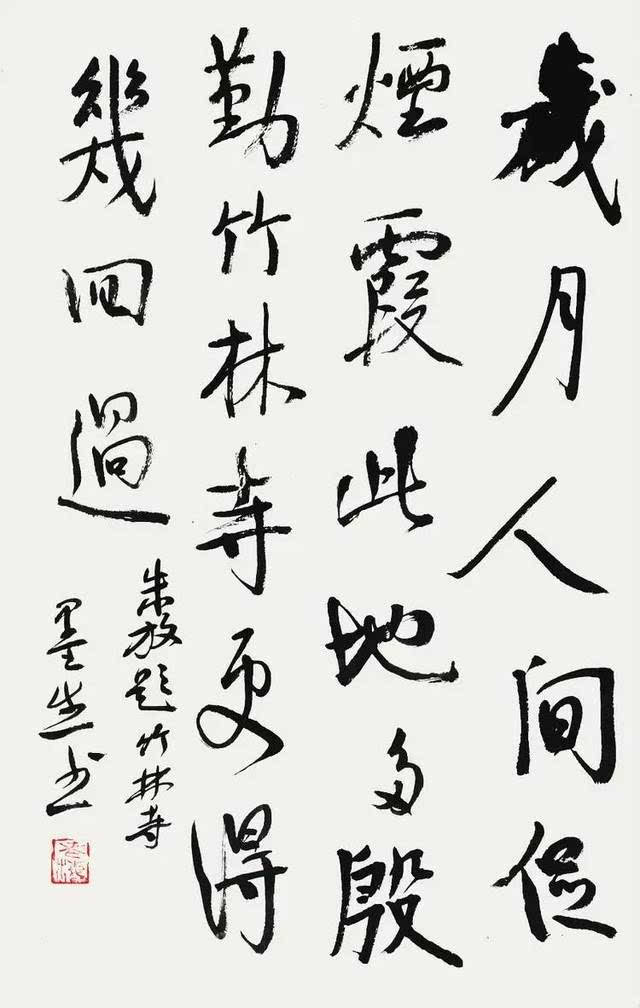 歲月人間促
煙霞此地多殷
勤竹林寺更得
幾回過
朱放題竹林寺
墨书